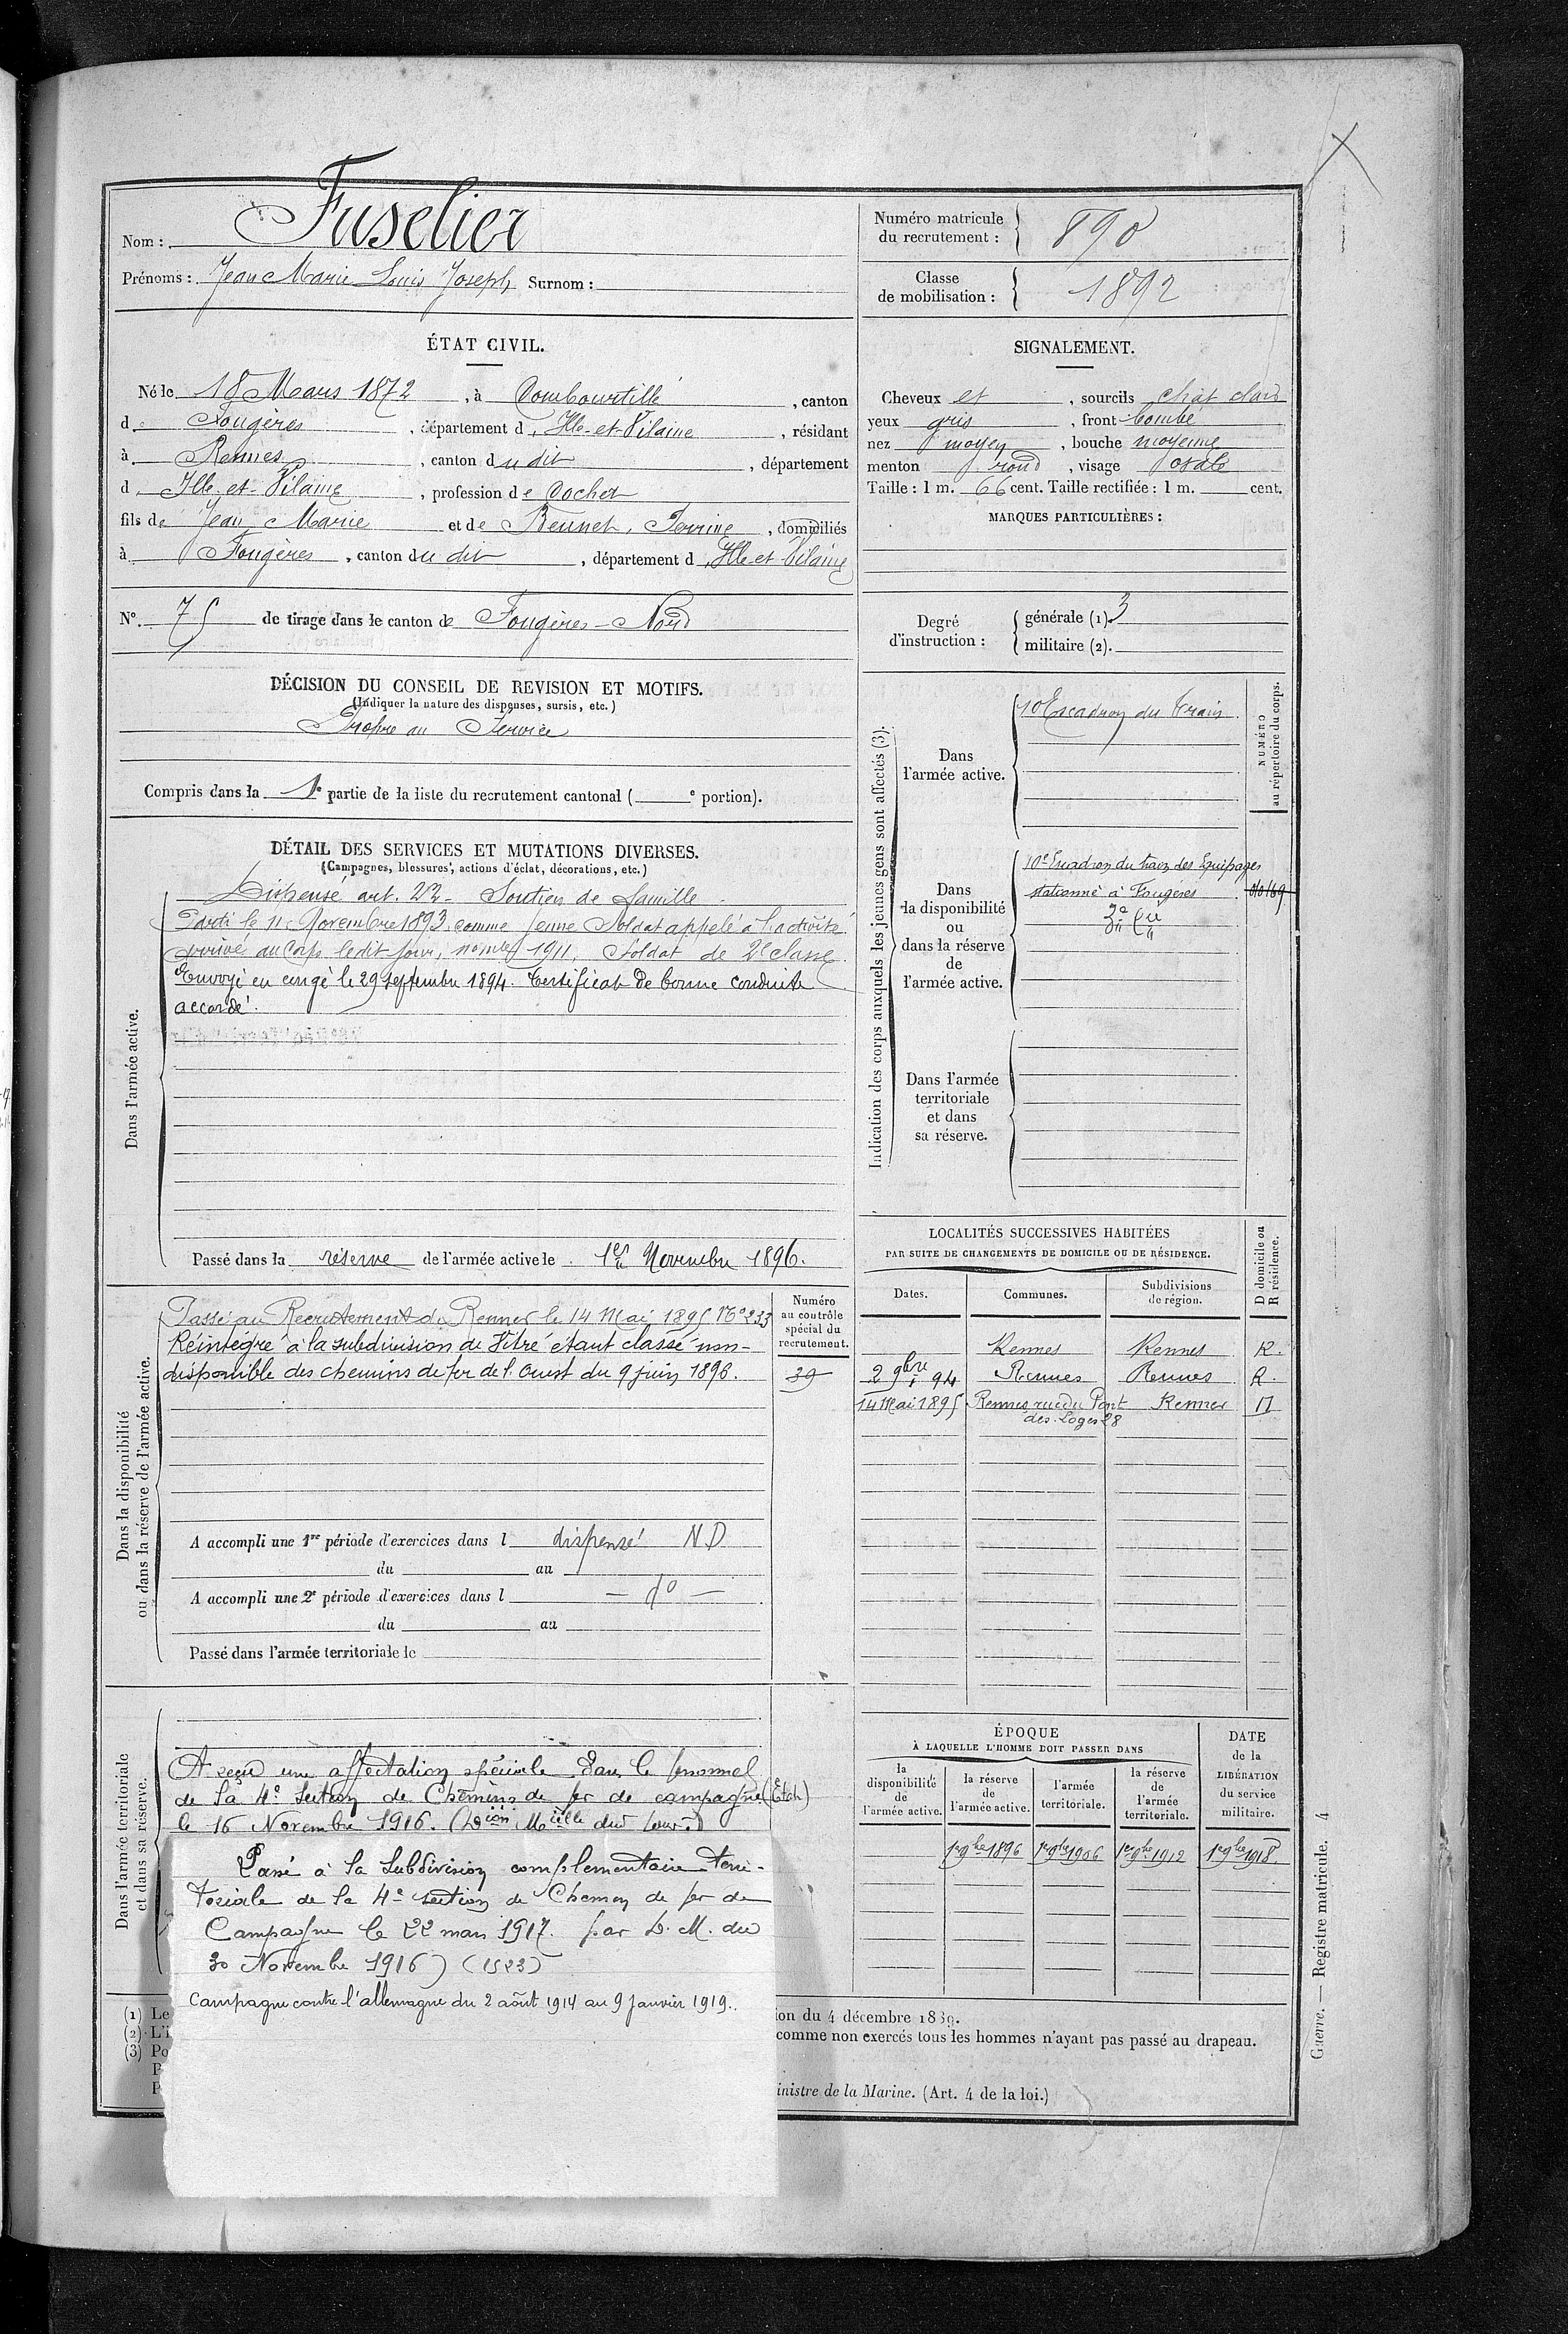 Nom : Fuselier
Prénoms : Jean Marie Louis Joseph Surnom :
Numéro matricule du recrutement : 890
Classe de mobilisation : 1892
ÉTAT CIVIL.
Né le 18 Mars 1872, à Combourtillé, canton
d Fougères, département d'Ille-et-Vilaine, résidant
à Rennes, canton dudit, département
d'Ille-et-Vilaine, profession de Cocher
fils de Jean Marie et de Perrine, domiciliés
à Fougères, canton du dit, département d'Ille et Vilaine
N° 75 de tirage dans le canton de Fougères-Nord
SIGNALEMENT.
Cheveux et, sourcils chât clairs
yeux gris, front bombé
nez moyen, bouche moyenne
menton rond, visage ovale
Taille : 1 m. 66 cent. Taille rectifiée : 1 m. cent.
MARQUES PARTICULIÈRES :
Degré d'instruction :
générale (1). 3
militaire (2).
DÉCISION DU CONSEIL DE REVISION ET MOTIFS.
(Indiquer la nature des dispenses, sursis, etc.)
Propre au Service
Compris dans la 1e partie de la liste du recrutement cantonal ( e portion).
DÉTAIL DES SERVICES ET MUTATIONS DIVERSES.
(Campagnes, blessures, actions d'éclat, décorations, etc.)
Dans l'armée active.
Dispensé art. 23. Soutien de famille
Parti le 11 Novembre 1893 comme jeune Soldat appelé à l'activité
arrivé au Corps ledit jour, 1911, Soldat de 2e classe
Envoyé en congé le 29 septembre 1894. Certificat de bonne conduite
accordé.
Passé dans la réserve de l'armée active le 1er Novembre 1896.
Indication des corps auxquels les jeunes gens sont affectés (3).
NUMÉRO au répertoire du corps.
Dans l'armée active.
10 Escadron du train
Dans la disponibilité ou dans la réserve de l'armée active.
10e Escadron du train des Equipages
stationné à Fougères
Dans l'armée territoriale et dans sa réserve.
Dans la disponibilité ou dans la réserve de l'armée active.
Numéro au contrôle spécial du recrutement.
Passé au Recrutement de Rennes le 14 Mai 1895 N° 233
Réintégré à la subdivision de Vitré étant classé non-
disponible des chemins de fer de l'Ouest du 9 juin 1896.
39
A accompli une 1re période d'exercices dans l dispensé N.D
du au
A accompli une 2e période d'exercices dans l — do —
du au
Passé dans l'armée territoriale le
LOCALITÉS SUCCESSIVES HABITÉES
PAR SUITE DE CHANGEMENTS DE DOMICILE OU DE RÉSIDENCE.
Dates. Communes. Subdivisions de région. D domicile ou R résidence.
Rennes Rennes R.
2 9bre 94 Rennes Rennes R.
14 Mai 1895 Rennes, rue du Pont des Loges 28 Rennes D
Dans l'armée territoriale et dans sa réserve.
A reçu une affectation spéciale dans le personnel
de la 4e Section de Chemins de fer de campagne
le 16 Novembre 1916.
Passé à la Subdivision complémentaire terri-
toriale de la 4e section de Chemin de fer de
Campagne le 22 mars 1917. par D. M. du
30 Novembre 1916) (1523)
Campagne contre l'allemagne du 2 août 1914 au 9 janvier 1919.
ÉPOQUE
À LAQUELLE L'HOMME DOIT PASSER DANS
la disponibilité de l'armée active.
la réserve de l'armée active.
l'armée territoriale.
la réserve de l'armée territoriale.
DATE de la LIBÉRATION du service militaire.
1er 9bre 1896 1er 9bre 1906 1er 9bre 1912 1er 9bre 1918.
(1) Le
(2) L'i
(3) Po
P
P
ion du 4 décembre 1889.
comme non exercés tous les hommes n'ayant pas passé au drapeau.
inistre de la Marine. (Art. 4 de la loi.)
Guerre. — Registre matricule. 4